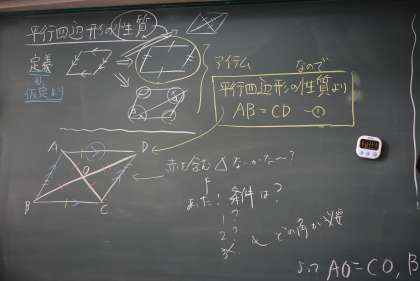 平行四辺形の性質
定義
仮定より
アイテム
なので
平行四辺形の性質より
AB=CD ー①
A
D
O
B
C
赤を含む△ないかな〜?
あった! 条件は?
1?
2?
3
どの角が必要
よって AO=CO, B